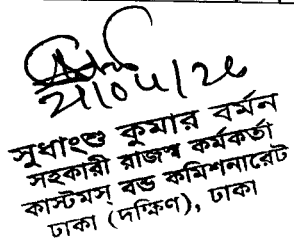 সুধাংশু কুমার বর্মন
সহকারী রাজস্ব কর্মকর্তা
কাস্টমস্ বন্ড কমিশনারেট
ঢাকা (দক্ষিণ), ঢাকা